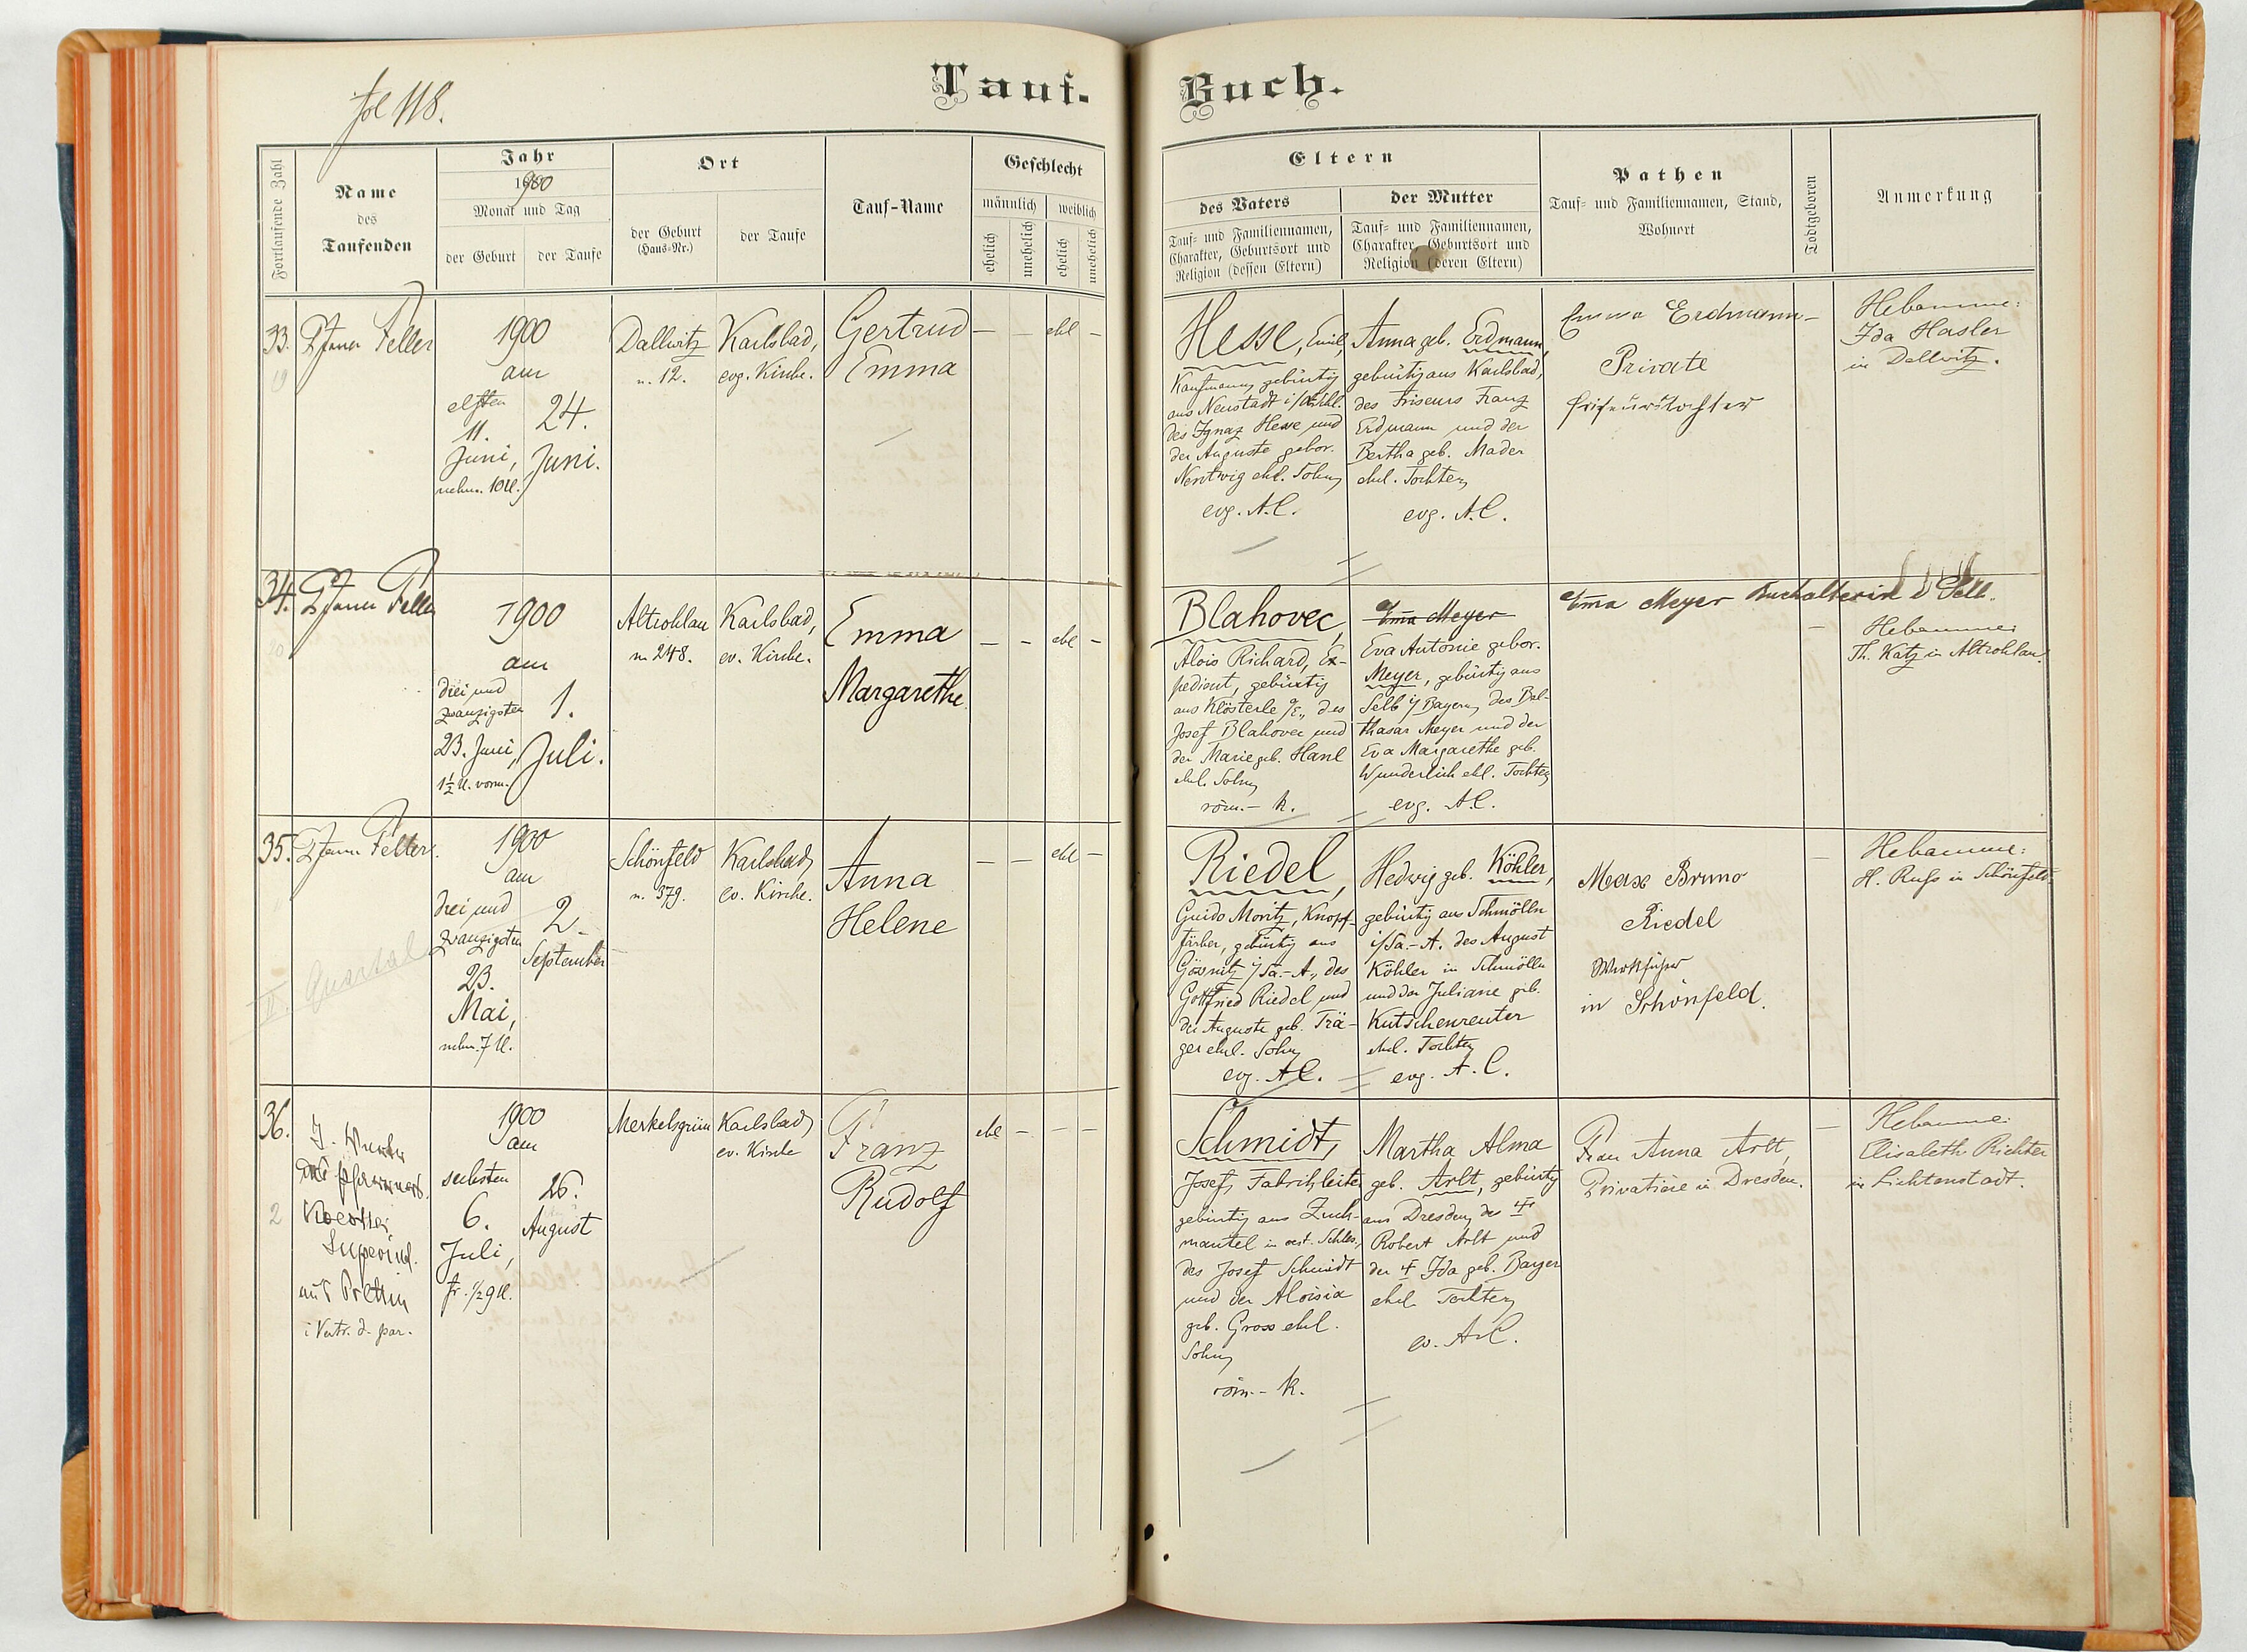 fol 118.
Tauf-
Buch.
Fortlaufende Zahl
Name
des
Taufenden
Jahr
1900
Monat und Tag
der Geburt
der Taufe
Ort
der Geburt
(Haus-Nr.)
der Taufe
Tauf-Name
Geschlecht
männlich
weiblich
ehelich
unehelich
ehelich
unehelich
Eltern
des Vaters
Tauf- und Familiennamen,
Charakter, Geburtsort und
Religion (dessen Eltern)
der Mutter
Tauf- und Familiennamen,
Charakter, Geburtsort und
Religion (deren Eltern)
Pathen
Tauf- und Familiennamen, Stand,
Wohnort
Todtgeboren
Anmerkung
33.
19
Pfarrer Feller
1900
am
elften
11.
Juni,
nachm. 10 U.
24.
Juni.
Dallwitz
n. 12.
Karlsbad,
evg. Kirche.
Gertrud
Emma
— — ehl —
Hesse, Emil,
Kaufmann, gebürtig
aus Neustadt
des Ignaz Hesse und
der Auguste gebor.
Nentwig ehl. Sohn
evg. A.C.
Anna geb. Erdmann,
gebürtig aus Karlsbad,
des Friseurs Franz
Erdmann und der
Bertha geb. Mader
ehel. Tochter
evg. A.C.
Emma Erdmann
Private
Friseurstochter
—
Hebamme:
Ida Hasler
in Dallwitz.
34.
20
Pfarrer Feller
1900
am
drei und
zwanzigsten
23. Juni,
1½ U. vorm.
1.
Juli.
Altrohlau
n. 248.
Karlsbad,
ev. Kirche.
Emma
Margarethe
— — ehl —
Blahovec,
Alois Richard, Ex-
pedient, gebürtig
aus Klösterle a/E., des
Josef Blahovec und
der Marie geb. Hanl
ehel. Sohn
röm.- k.
Ema Meyer
Eva Antonie gebor.
Meyer, gebürtig aus
Selb i/Bayern, des Bal-
thasar Meyer und der
Eva Margarethe geb.
Wunderlich ehl. Tochter
evg. A.C.
Ema Meyer Buchalterin Selb.
—
Hebamme:
Th. Katz in Altrohlau.
35.
Pfarrer Feller.
II. Quartal
1900
am
drei und
zwanzigsten
23.
Mai,
nachm. 7 U.
2.
September
Schönfeld
n. 379.
Karlsbad,
ev. Kirche.
Anna
Helene
— — ehl —
Riedel,
Guido Moritz, Knopf-
färber, gebürtig aus
Gössnitz i/Sa.-A., des
Gottfried Riedel und
der Auguste geb. Trä-
ger ehel. Sohn
evg. A.C.
Hedwig geb. Köhler,
gebürtig aus Schmölln
i/Sa.-A. des August
Köhler in Schmölln
und der Juliane geb.
Kutschenreuter
ehel. Tochter
evg. A.C.
Max Bruno
Riedel
Werkführer
in Schönfeld.
—
Hebamme:
H. Russ in Schönfeld.
36.
2
Superind.
aus Prettin
i Vertr. d. par.
1900
am
sechsten
6.
Juli,
fr. ½9 U.
26.
August
Merkelsgrün
Karlsbad,
ev. Kirche
Franz
Rudolf
ehl — — —
Schmidt,
Josef, Fabrikleiter
gebürtig aus Zuck-
mantel in oest. Schles.,
des Josef Schmidt
und der Aloisia
geb. Gross ehel.
Sohn
röm.- k.
Martha Alma
geb. Arlt, gebürtig
aus Dresden, des †
Robert Arlt und
der † Ida geb. Bayer
ehel. Tochter
ev. A.C.
Frau Anna Arlt,
Privatière in Dresden.
—
Hebamme:
Elisabeth Richter
in Lichtenstadt.